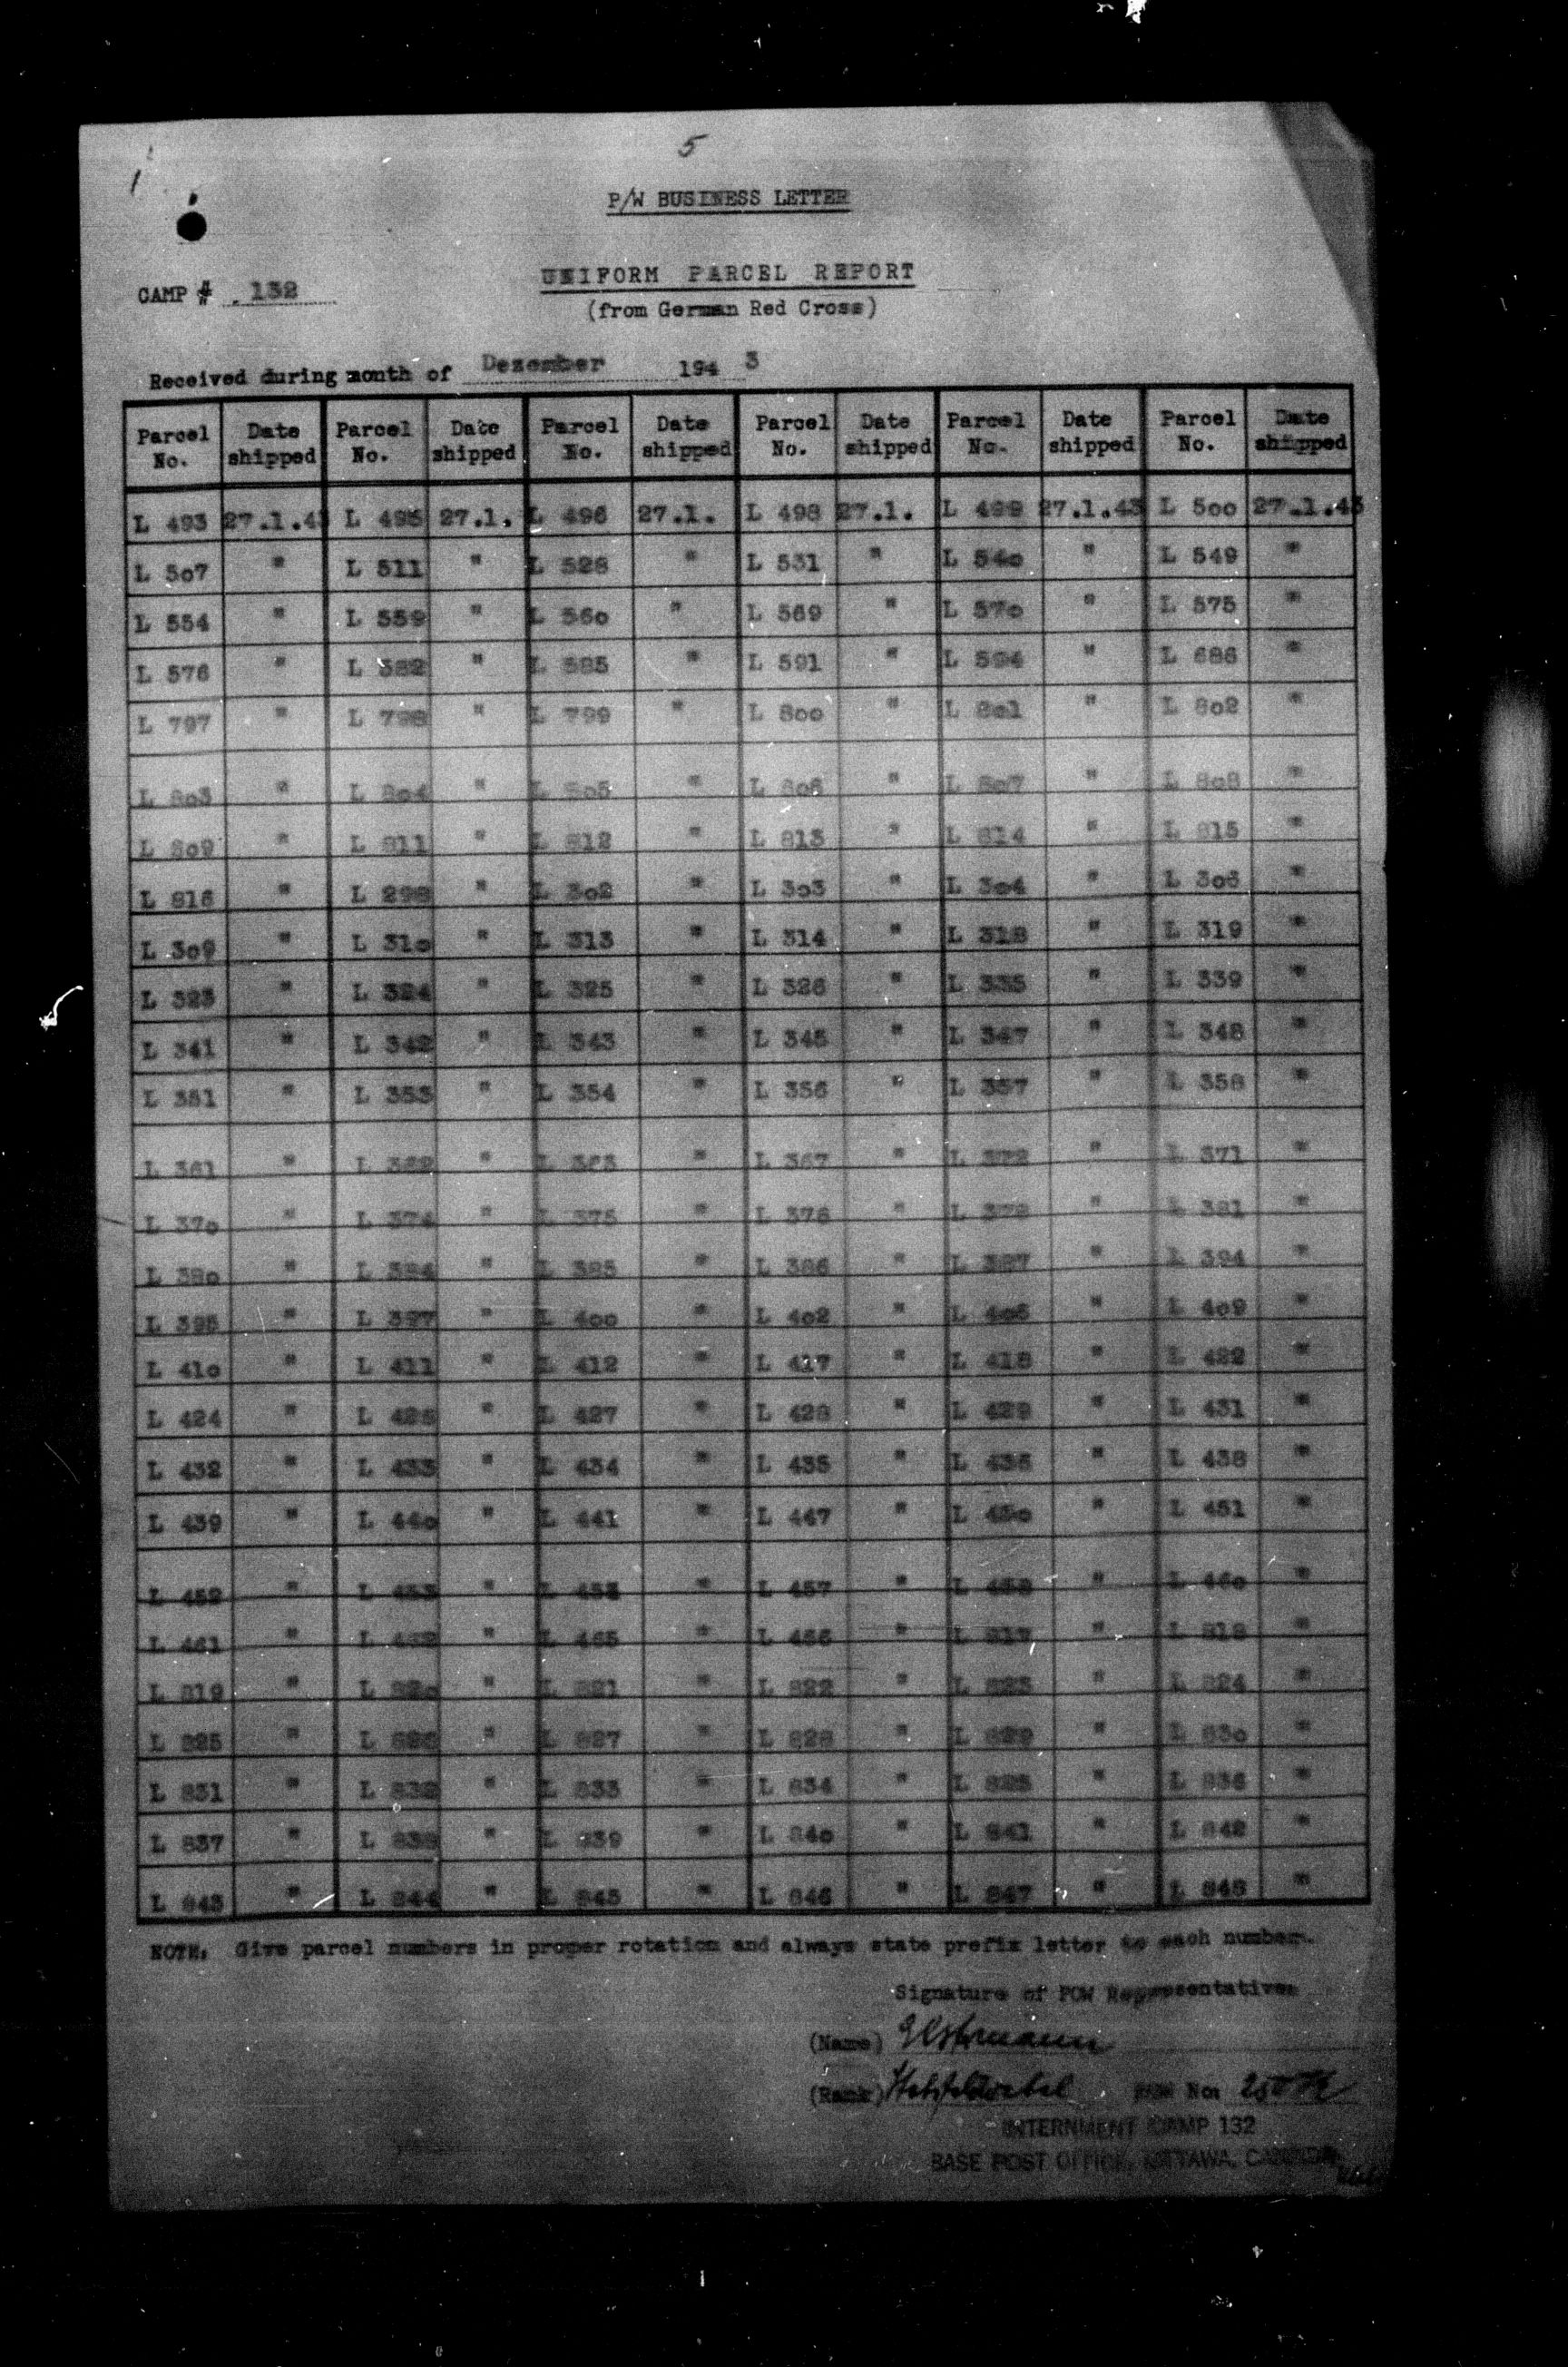 5
P/W BUSINESS LETTER
UNIFORM PARCEL REPORT
CAMP # . 132
(from German Red Cross)
Received during month of Dezember 194 3
Parcel No. Date shipped Parcel No. Date shipped Parcel No. Date shipped Parcel No. Date shipped Parcel No. Date shipped Parcel No. Date shipped
L 493 27.1.43 L 495 27.1. L 496 27.1. L 498 27.1. L 499 27.1.43 L 5oo 27.1.43
L 5o7 " L 511 " L 528 " L 531 " L 54o " L 549 "
L 554 " L 559 " L 56o " L 569 " L 57o " L 575 "
L 576 " L 582 " L 585 " L 591 " L 594 " L 686 "
L 797 " L 798 " L 799 " L 8oo " L 8o1 " L 8o2 "
L 8o3 " L 8o4 " L 8o5 " L 8o6 " L 8o7 " L 8o8 "
L 8o9 " L 811 " L 812 " L 813 " L 814 " L 815 "
L 816 " L 298 " L 3o2 " L 3o3 " L 3o4 " L 3o6 "
L 3o9 " L 31o " L 313 " L 314 " L 318 " L 319 "
L 323 " L 324 " L 325 " L 326 " L 335 " L 339 "
L 341 " L 342 " L 343 " L 345 " L 347 " L 348 "
L 351 " L 353 " L 354 " L 356 " L 357 " L 358 "
L 361 " L 362 " L 363 " L 367 " L 372 " L 371 "
L 37o " L 374 " L 375 " L 376 " L 378 " L 381 "
L 38o " L 384 " L 385 " L 386 " L 387 " L 394 "
L 395 " L 397 " L 4oo " L 4o2 " L 4o6 " L 4o9 "
L 41o " L 411 " L 412 " L 417 " L 418 " L 422 "
L 424 " L 425 " L 427 " L 428 " L 429 " L 431 "
L 432 " L 433 " L 434 " L 435 " L 436 " L 438 "
L 439 " L 44o " L 441 " L 447 " L 45o " L 451 "
L 452 " L 453 " L " L 457 " L 458 " L 46o "
L 461 " L 462 " L 465 " L 466 " L 817 " L 818 "
L 819 " L 82o " L 821 " L 822 " L 823 " L 824 "
L 825 " L 826 " L 827 " L 828 " L 829 " L 83o "
L 831 " L 832 " L 833 " L 834 " L 835 " L 836 "
L 837 " L 838 " L 839 " L 84o " L 841 " L 842 "
L 843 " L 844 " L 845 " L 846 " L 847 " L 848 "
NOTE: Give parcel numbers in proper rotation and always state prefix letter to each number.
Signature of POW Representative:
(Name)
(Rank) Stabsfeldwebel POW No:
INTERNMENT CAMP 132
BASE POST OFFICE, OTTAWA, CANADA